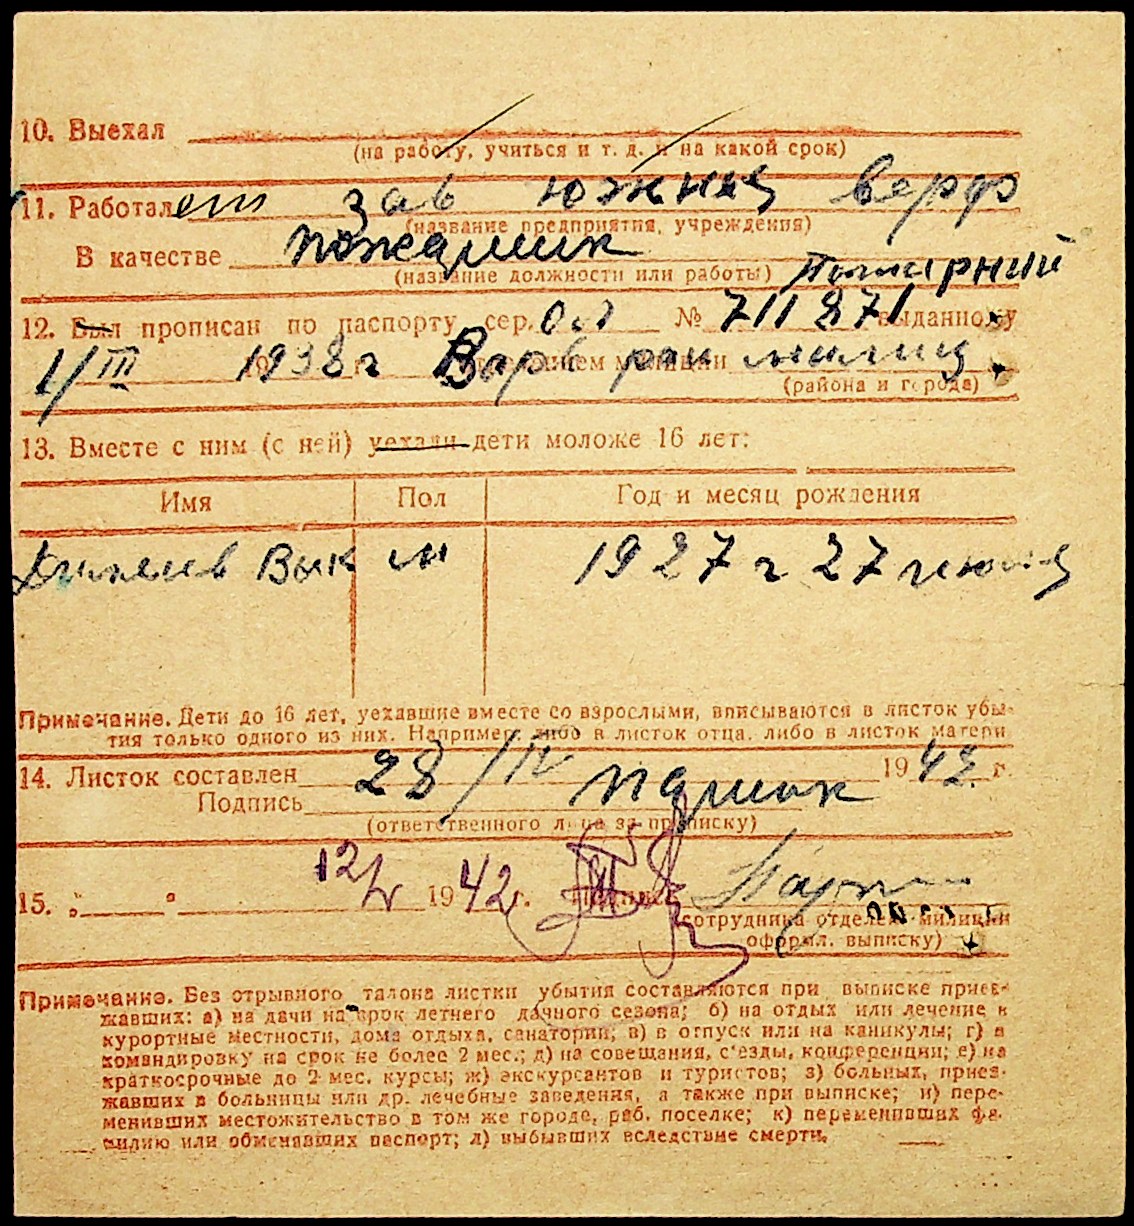 10. Выехал
(на работу, учиться и т. д. и на какой срок)
11. Работает зав южная верф
(название предприятия, учреждения)
В качестве пожарник
(название должности или работы) Пожарный
12. Был прописан по паспорту сер. № 711871 выданному
1/III 1938 г Варв рай милиц
(района и города)
13. Вместе с ним (с ней) уехали дети моложе 16 лет:
Имя Пол Год и месяц рождения
Вик м 1927 г 27 июня
Примечание. Дети до 16 лет, уехавшие вместе со взрослыми, вписываются в листок убы-
тия только одного из них. Например: либо в листок отца, либо в листок матери
14. Листок составлен 28/IV 1942 г.
Подпись
(ответственного лица за прописку)
15. „ “ 12/V 1942 г. Подпись
сотрудника отделен. милиции
оформл. выписку)
Примечание. Без отрывного талона листки убытия составляются при выписке приез-
жавших: а) на дачи на срок летнего дачного сезона; б) на отдых или лечение в
курортные местности, дома отдыха, санатории; в) в отпуск или на каникулы; г) в
командировку на срок не более 2 мес.; д) на совещания, с'езды, конференции; е) на
краткосрочные до 2 мес. курсы; ж) экскурсантов и туристов; з) больных, приез-
жавших в больницы или др. лечебные заведения, а также при выписке; и) пере-
менивших местожительство в том же городе, раб. поселке; к) переменивших фа-
милию или обменявших паспорт; л) выбывших вследствие смерти.